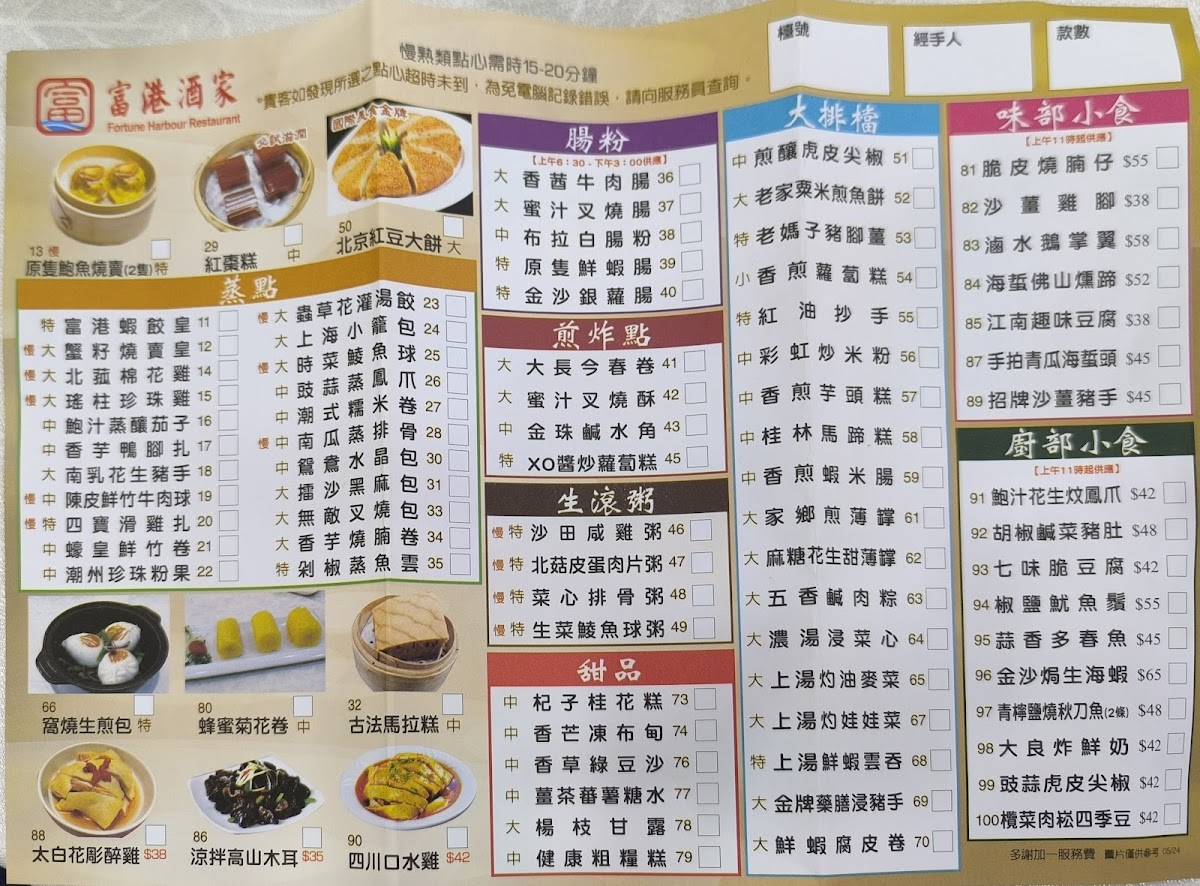 慢熟類點心需時15-20分鐘
*貴客如發現所選之點心超時未到，為免電腦記錄錯誤，請向服務員查詢。
檯號
經手人
款數
富
富港酒家
Fortune Harbour Restaurant
必試滋潤
國際美食金牌
13 慢
原隻鮑魚燒賣(2隻)特
29
紅棗糕 中
50
北京紅豆大餅 大
蒸點
特 富港蝦餃皇 11
慢 大 蟹籽燒賣皇 12
慢 大 北菰棉花雞 14
慢 大 瑤柱珍珠雞 15
中 鮑汁蒸釀茄子 16
中 香芋鴨腳扎 17
大 南乳花生豬手 18
慢 中 陳皮鮮竹牛肉球 19
慢 特 四寶滑雞扎 20
中 蠔皇鮮竹卷 21
中 潮州珍珠粉果 22
慢 大 蟲草花灌湯餃 23
大 上海小籠包 24
慢 大 時菜鯪魚球 25
中 豉蒜蒸鳳爪 26
中 潮式糯米卷 27
慢 中 南瓜蒸排骨 28
中 鴛鴦水晶包 30
中 擂沙黑麻包 31
大 無敵叉燒包 33
大 香芋燒腩卷 34
特 剁椒蒸魚雲 35
66
窩燒生煎包 特
80
蜂蜜菊花卷 中
32
古法馬拉糕 中
88
太白花彫醉雞 $38
86
涼拌高山木耳 $35
90
四川口水雞 $42
腸粉
【上午6：30 - 下午3：00供應】
大 香茜牛肉腸 36
大 蜜汁叉燒腸 37
中 布拉白腸粉 38
特 原隻鮮蝦腸 39
特 金沙銀蘿腸 40
煎炸點
大 大長今春卷 41
大 蜜汁叉燒酥 42
中 金珠鹹水角 43
特 XO醬炒蘿蔔糕 45
生滾粥
慢 特 沙田咸雞粥 46
慢 特 北菇皮蛋肉片粥 47
慢 特 菜心排骨粥 48
慢 特 生菜鯪魚球粥 49
甜品
中 杞子桂花糕 73
中 香芒凍布甸 74
中 香草綠豆沙 76
中 薑茶蕃薯糖水 77
大 楊枝甘露 78
中 健康粗糧糕 79
大排檔
中 煎釀虎皮尖椒 51
大 老家粟米煎魚餅 52
特 老媽子豬腳薑 53
小 香煎蘿蔔糕 54
特 紅油抄手 55
中 彩虹炒米粉 56
中 香煎芋頭糕 57
中 桂林馬蹄糕 58
中 香煎蝦米腸 59
大 家鄉煎薄罉 61
大 麻糖花生甜薄罉 62
大 五香鹹肉粽 63
大 濃湯浸菜心 64
大 上湯灼油麥菜 65
大 上湯灼娃娃菜 67
特 上湯鮮蝦雲吞 68
大 金牌藥膳浸豬手 69
大 鮮蝦腐皮卷 70
味部小食
【上午11時起供應】
81 脆皮燒腩仔 $55
82 沙薑雞腳 $38
83 滷水鵝掌翼 $58
84 海蜇佛山燻蹄 $52
85 江南趣味豆腐 $38
87 手拍青瓜海蜇頭 $45
89 招牌沙薑豬手 $45
廚部小食
【上午11時起供應】
91 鮑汁花生炆鳳爪 $42
92 胡椒鹹菜豬肚 $48
93 七味脆豆腐 $42
94 椒鹽魷魚鬚 $55
95 蒜香多春魚 $45
96 金沙焗生海蝦 $65
97 青檸鹽燒秋刀魚(2條) $48
98 大良炸鮮奶 $42
99 豉蒜虎皮尖椒 $42
100 欖菜肉崧四季豆 $42
多謝加一服務費 圖片僅供參考 05/24